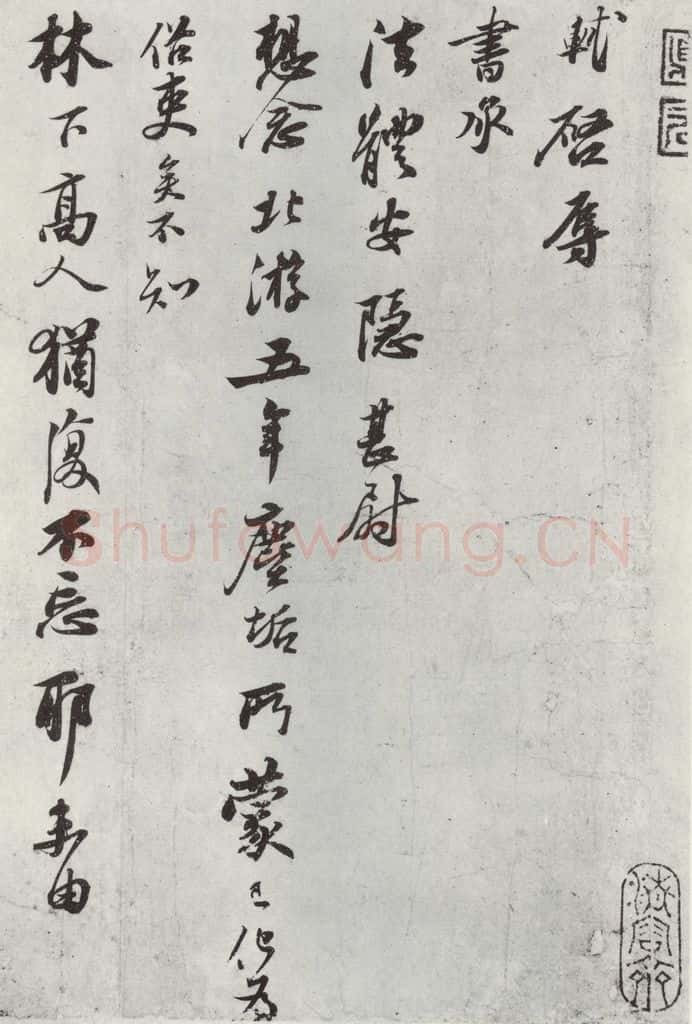 軾啓辱
書承
法體安隱甚尉
想念北游五年塵垢所蒙已化為
俗吏矣不知
林下高人猶復不忘耶未由
Shufawang.CN